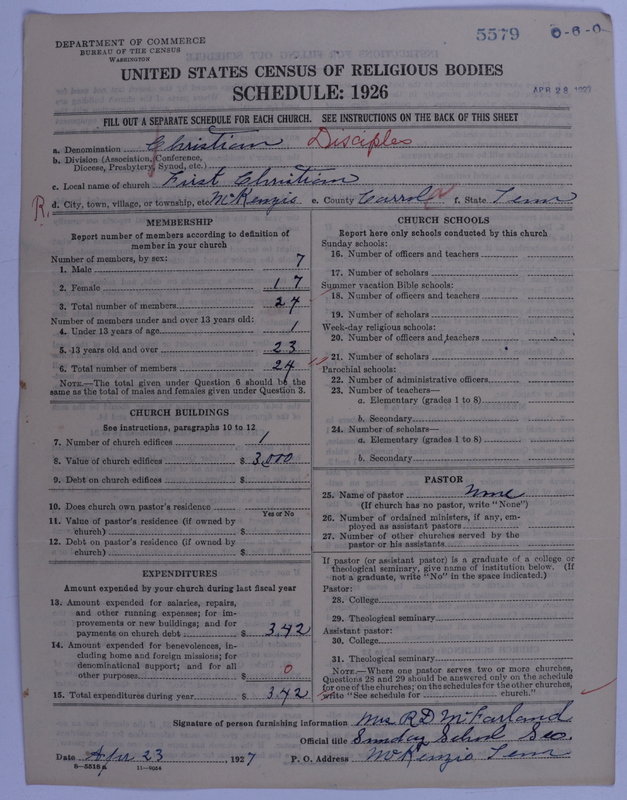 5579 0-6-0
DEPARTMENT OF COMMERCE
BUREAU OF THE CENSUS
WASHINGTON
UNITED STATES CENSUS OF RELIGIOUS BODIES
SCHEDULE: 1926
APR 28 1927
FILL OUT A SEPARATE SCHEDULE FOR EACH CHURCH. SEE INSTRUCTIONS ON THE BACK OF THIS SHEET
a. Denomination Christian Disciples
b. Division (Association, Conference,
Diocese, Presbytery, Synod, etc.)
c. Local name of church First Christian
R. d. City, town, village, or township, etc. McKenzie e. County Carroll f. State Tenn
MEMBERSHIP
Report number of members according to definition of
member in your church
Number of members, by sex:
1. Male 7
2. Female 17
3. Total number of members 24
Number of members under and over 13 years old:
4. Under 13 years of age 1
5. 13 years old and over 23
6. Total number of members 24
NOTE.—The total given under Question 6 should be the
same as the total of males and females given under Question 3.
CHURCH BUILDINGS
See instructions, paragraphs 10 to 12
7. Number of church edifices 1
8. Value of church edifices $ 3,000
9. Debt on church edifices $
10. Does church own pastor's residence
Yes or No
11. Value of pastor's residence (if owned by
church) $
12. Debt on pastor's residence (if owned by
church) $
EXPENDITURES
Amount expended by your church during last fiscal year
13. Amount expended for salaries, repairs,
and other running expenses; for im-
provements or new buildings; and for
payments on church debt $ 342
14. Amount expended for benevolences, in-
cluding home and foreign missions; for
denominational support; and for all
other purposes $ 0
15. Total expenditures during year $ 342
CHURCH SCHOOLS
Report here only schools conducted by this church
Sunday schools:
16. Number of officers and teachers
17. Number of scholars
Summer vacation Bible schools:
18. Number of officers and teachers
19. Number of scholars
Week-day religious schools:
20. Number of officers and teachers
21. Number of scholars
Parochial schools:
22. Number of administrative officers
23. Number of teachers—
a. Elementary (grades 1 to 8)
b. Secondary
24. Number of scholars—
a. Elementary (grades 1 to 8)
b. Secondary
PASTOR
25. Name of pastor None
(If church has no pastor, write "None")
26. Number of ordained ministers, if any, em-
ployed as assistant pastors
27. Number of other churches served by the
pastor or his assistants
If pastor (or assistant pastor) is a graduate of a college or
theological seminary, give name of institution below. (If
not a graduate, write "No" in the space indicated.)
Pastor:
28. College
29. Theological seminary
Assistant pastor:
30. College
31. Theological seminary
NOTE.—Where one pastor serves two or more churches,
Questions 28 and 29 should be answered only on the schedule
for one of the churches; on the schedules for the other churches,
write "See schedule for church."
Signature of person furnishing information Mrs R D McFarland
Official title Sunday School Sec.
Date Apr 23 1927 P. O. Address McKenzie Tenn
8-5518a 11-9054